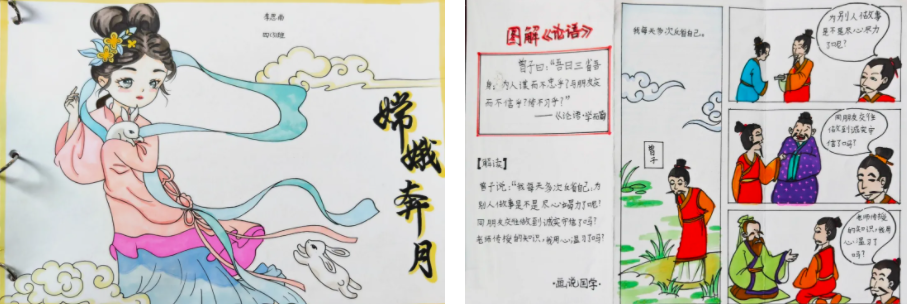 李思雨
嫦娥奔月
图解《论语》
曾子曰：“吾日三省吾
身：为人谋而不忠乎？与朋友交
而不信乎？传不习乎？”
——《论语·学而篇
【解读】
曾子说：“我每天多次反省自己，为
别人做事是不是尽心竭力了呢？
同朋友交往做到诚实守信了吗？
老师传授的知识，我用心温习了吗？
·画说国学·
我每天多次反省自己。
曾子
为别人做事
是不是尽心尽力
了呢？
同朋友交往
做到诚实守
信了吗？
老师传授
的知识，我用
心温习了
吗？